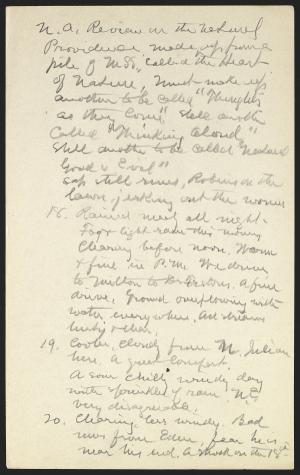 N. A. Review on the Natural
Providence, made up from a
pile of MSS. called the Heart
of Nature, Must make up
another to be called "Thoughts
as they Come," Still another
called "Thinking Aloud"
Still another to be called Natural
Good & Evil"
Sap still runs, Robins on the
lawn, jerking out the worms
18. Rained most all night.
Fog & light rain this morning
Clearing before noon. Warm
& fine in P.M. We drive
to Milton to a fine
drive, Ground overflowing with
water everywhere, All streams
& clear,
19. Cooler, cloudy from N, Julian
here, A great comfort.
A sour chilly windy day
with sprinkles of rain.
very disagreeable.
20. Clearing, less windy. Bad
news from Eden, fear he is
near his end, A shock on the 18th